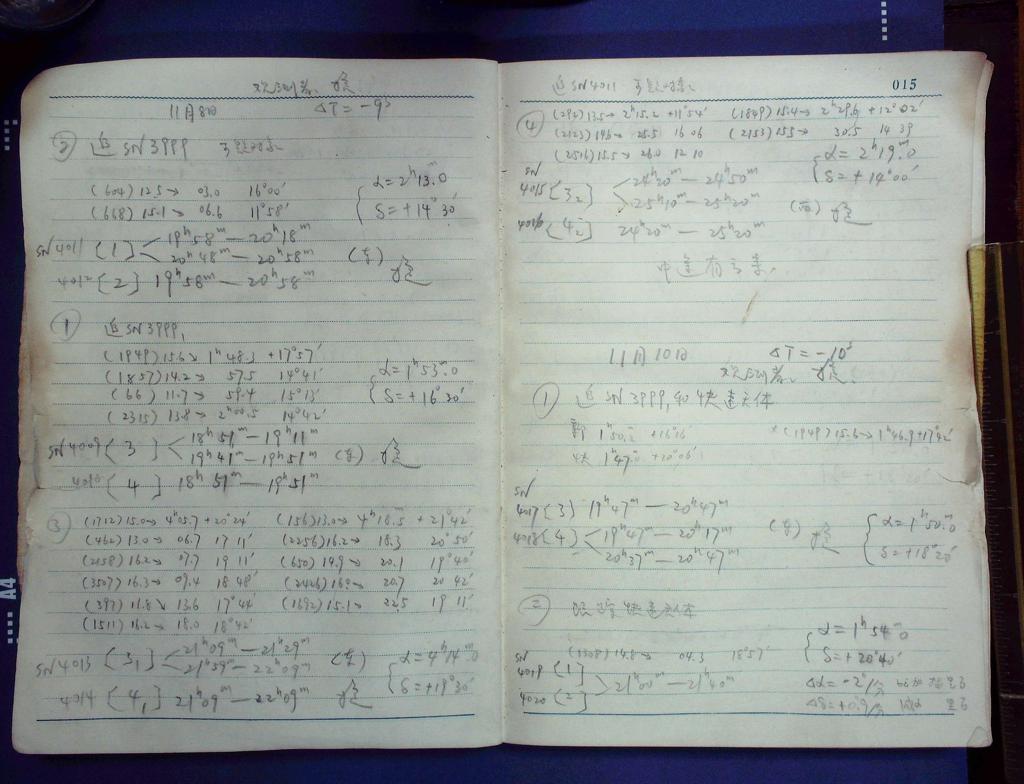 观测者
11月8日 ΔT=-9ˢ
② 追SN3999
(604) 12.5→ 03.0 16°00′
(668) 15.1→ 06.6 11°58′
α=2ʰ13ᵐ.0
δ=+14°30′
SN4011 [1] 19ʰ58ᵐ—20ʰ18ᵐ
20ʰ48ᵐ—20ʰ58ᵐ
4012 [2] 19ʰ58ᵐ—20ʰ58ᵐ
① 追SN3999,
(1949) 15.6→ 1ʰ48.3 +17°57′
(1857) 14.2→ 57.5 14°41′
(66) 11.7→ 59.4 15°13′
(2315) 13.8→ 2ʰ00.5 14°42′
α=1ʰ53ᵐ.0
δ=+16°30′
SN4009 [3] 18ʰ51ᵐ—19ʰ11ᵐ
19ʰ41ᵐ—19ʰ51ᵐ
4010 [4] 18ʰ51ᵐ—19ʰ51ᵐ
③ (1712) 15.0→ 4ʰ05.7 +20°24′ (156) 13.0→ 4ʰ18.5 +21°42′
(462) 13.0→ 06.7 17 11′ (2256) 16.2→ 18.3 20°50′
(2158) 16.2→ 07.7 19 11′ (650) 14.9→ 20.1 19°40′
(3507) 16.3→ 09.4 18 48′ 20.7 20 42′
(397) 11.8→ 13.6 17°44′ (1692) 15.1→ 22.5 19 11′
(1511) 16.2→ 18.0 18°42′
SN4013 [3₁] 21ʰ09ᵐ—21ʰ29ᵐ
21ʰ59ᵐ—22ʰ09ᵐ
α=4ʰ14ᵐ.0
δ=+19°30′
4014 [4₁] 21ʰ09ᵐ—22ʰ09ᵐ
追SN4011
015
④ (292) 13.5→ 2ʰ15.2 +11°54′ (1849) 15.4→ 2ʰ29.6 +12°02′
(2123) 14.6→ 25.5 16 06 (2153) 15.5→ 30.5 14 39
(2516) 15.5→ 26.0 12 10
α=2ʰ19ᵐ.0
δ=+14°00′
SN
4015 [3₂] 24ʰ20ᵐ—24ʰ50ᵐ
25ʰ10ᵐ—25ʰ20ᵐ
(西)
4016 [4₂] 24ʰ20ᵐ—25ʰ20ᵐ
中途有云来.
11月10日 ΔT=-10ˢ
观测者.
① 追SN3999, 快速天体
1ʰ50.2 +16°16′ (1949) 15.6→ 1ʰ46.9 +17°42′
快 1ʰ47.0 +20°06′
SN
4017 [3] 19ʰ47ᵐ—20ʰ47ᵐ
4018 [4] 19ʰ47ᵐ—20ʰ17ᵐ
20ʰ37ᵐ—20ʰ47ᵐ
α=1ʰ50ᵐ.0
δ=+18°20′
② 跟踪快速天体
(1308) 14.8→ 04.3 18°57′
α=1ʰ54ᵐ.0
δ=+20°40′
SN
4019 [1]
4020 [2]
21ʰ00ᵐ—21ʰ40ᵐ